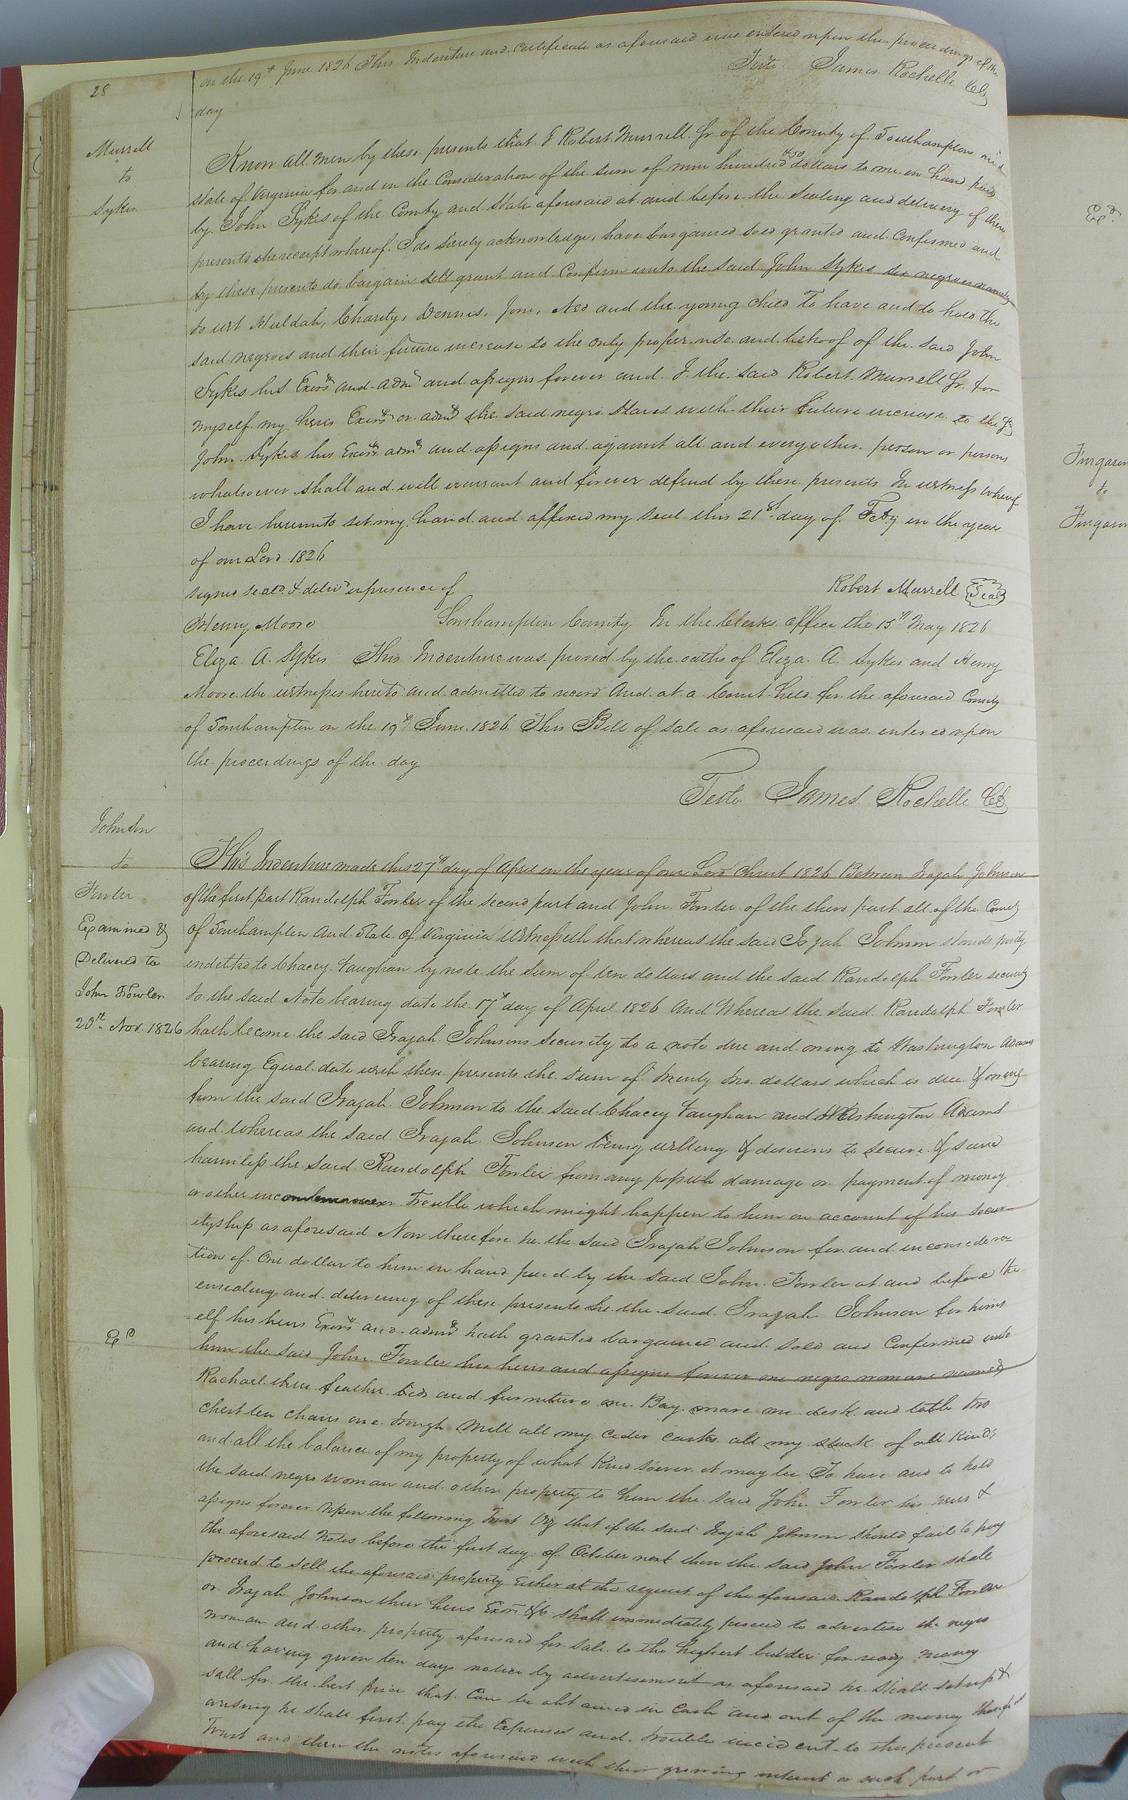 28
on the 19th June 1826 This Indenture and Certificate as aforesaid was entered upon the proceedings of the
day
Teste James Rochelle Clk
Murrell
to
Sykes
Know all men by these presents that I Robert Murrell Jr of the County of Southampton and
State of Virginia for and in the Consideration of the sum of nine hundred & 50 dollars to me in hand paid
by John Sykes of the County and State aforesaid at and before the Sealing and delivery of these
presents the receipt whereof I do hereby acknowledge, have bargained sold granted and Confirmed and
by these presents do bargain Sell grant and Confirm unto the said John Sykes six negroes namely
to wit Huldah, Charity, Dennis, Jom, Ned and the young Child To have and to hold the
said negroes and their future increase to the only proper use and behoof of the said John
Sykes his Exors and admrs and assigns forever and I the said Robert Murrell Jr for
myself my heirs Exors or admrs the said negro Slaves with their future increase to the sd
John Sykes his Exors admrs and assigns and against all and every other person or persons
whatsoever shall and will warrant and forever defend by these presents In witness whereof
I have hereunto set my hand and affixed my seal this 21st day of Feby in the year
of our Lord 1826
Signed seald & delivd in presence of
Robert Murrell Seal
Henry Moore Southampton County In the Clerks office the 15th May 1826
Eliza A. Sykes This Indenture was proved by the oaths of Eliza A. Sykes and Henry
Moore the witnesses hereto and admitted to record And at a Court held for the aforesaid County
of Southampton on the 19th June 1826 This Bill of Sale as aforesaid was entered upon
the proceedings of the day
Teste James Rochelle Clk
Johnson
to
Fowler
Examined &
Delivered to
John Fowler
20th Nov. 1826
This Indenture made this 27th day of April in the year of our Lord Christ 1826 Between Irajah Johnson
of the first part Randolph Fowler of the second part and John Fowler of the third part all of the County
of Southampton and State of Virginia Witnesseth that whereas the said Irajah Johnson stands justly
indetted to Chacey Vaughan by note the Sum of ten dollars and the said Randolph Fowler security
to the said Note bearing date the 17th day of April 1826 And Whereas the said Randolph Fowler
hath become the said Irajah Johnsons Security to a note due and owing to Washington Adams
bearing Equal date with these presents the sum of twenty two dollars which is due & owing
from the said Irajah Johnson to the said Chacey Vaughan and Washington Adams
and whereas the said Irajah Johnson being willing & desirous to secure & save
harmless the said Randolph Fowler from any possible damage or payment of money
or other Trouble which might happen to him on account of his secur
ityship as aforesaid Now therefore he the said Irajah Johnson for and in considera
tion of One dollar to him in hand paid by the said John Fowler at and before the
ensealing and delivering of these presents he the said Irajah Johnson for hims
elf his heirs Exors and admrs hath granted bargained and sold and Confirmed unto
him the said John Fowler his heirs and assigns forever one negro woman named
Rachael three feather beds and furniture one Bay mare one desk and table two
chest ten chairs one trough Mill all my Cider casks all my stock of all kinds
and all the balance of my property of what kind soever it may be To have and to hold
the said negro woman and other property to him the said John Fowler his heirs &
assigns forever Upon the following Trust Viz that if the said Irajah Johnson should fail to pay
the aforesaid notes before the first day of October next then the said John Fowler shall
proceed to sell the aforesaid property Either at the request of the aforesaid Randolph Fowler
or Irajah Johnson their heirs Exors &c shall immediately proceed to advertise the negro
woman and other property aforesaid for sale to the highest bidder for ready money
and having given ten days notice by advertisement as aforesaid he shall set up &
sell for the best price that Can be obtained in Cash and out of the money
arising he shall first pay the Expences and trouble incident to this present
Trust and then the notes aforesaid with their growing interest or such part or
Furgason
to
Furgason